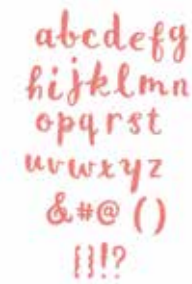 abcdefg
hijklmn
opqrst
uvwxyz
&#@ ()
{}!?